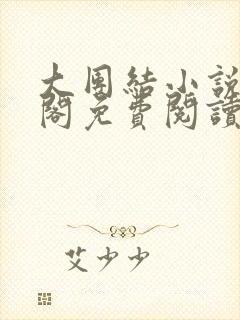 大團結小說
閣免費閱讀
艾少少